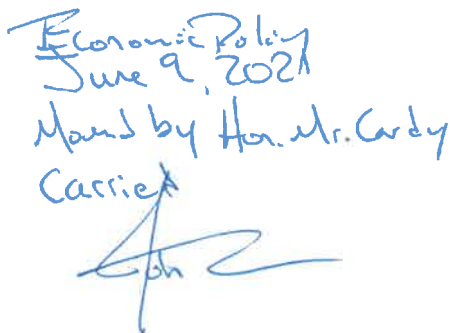 Economic Policy
June 9, 2021
Moved by Hon. Mr. Cardy
Carried